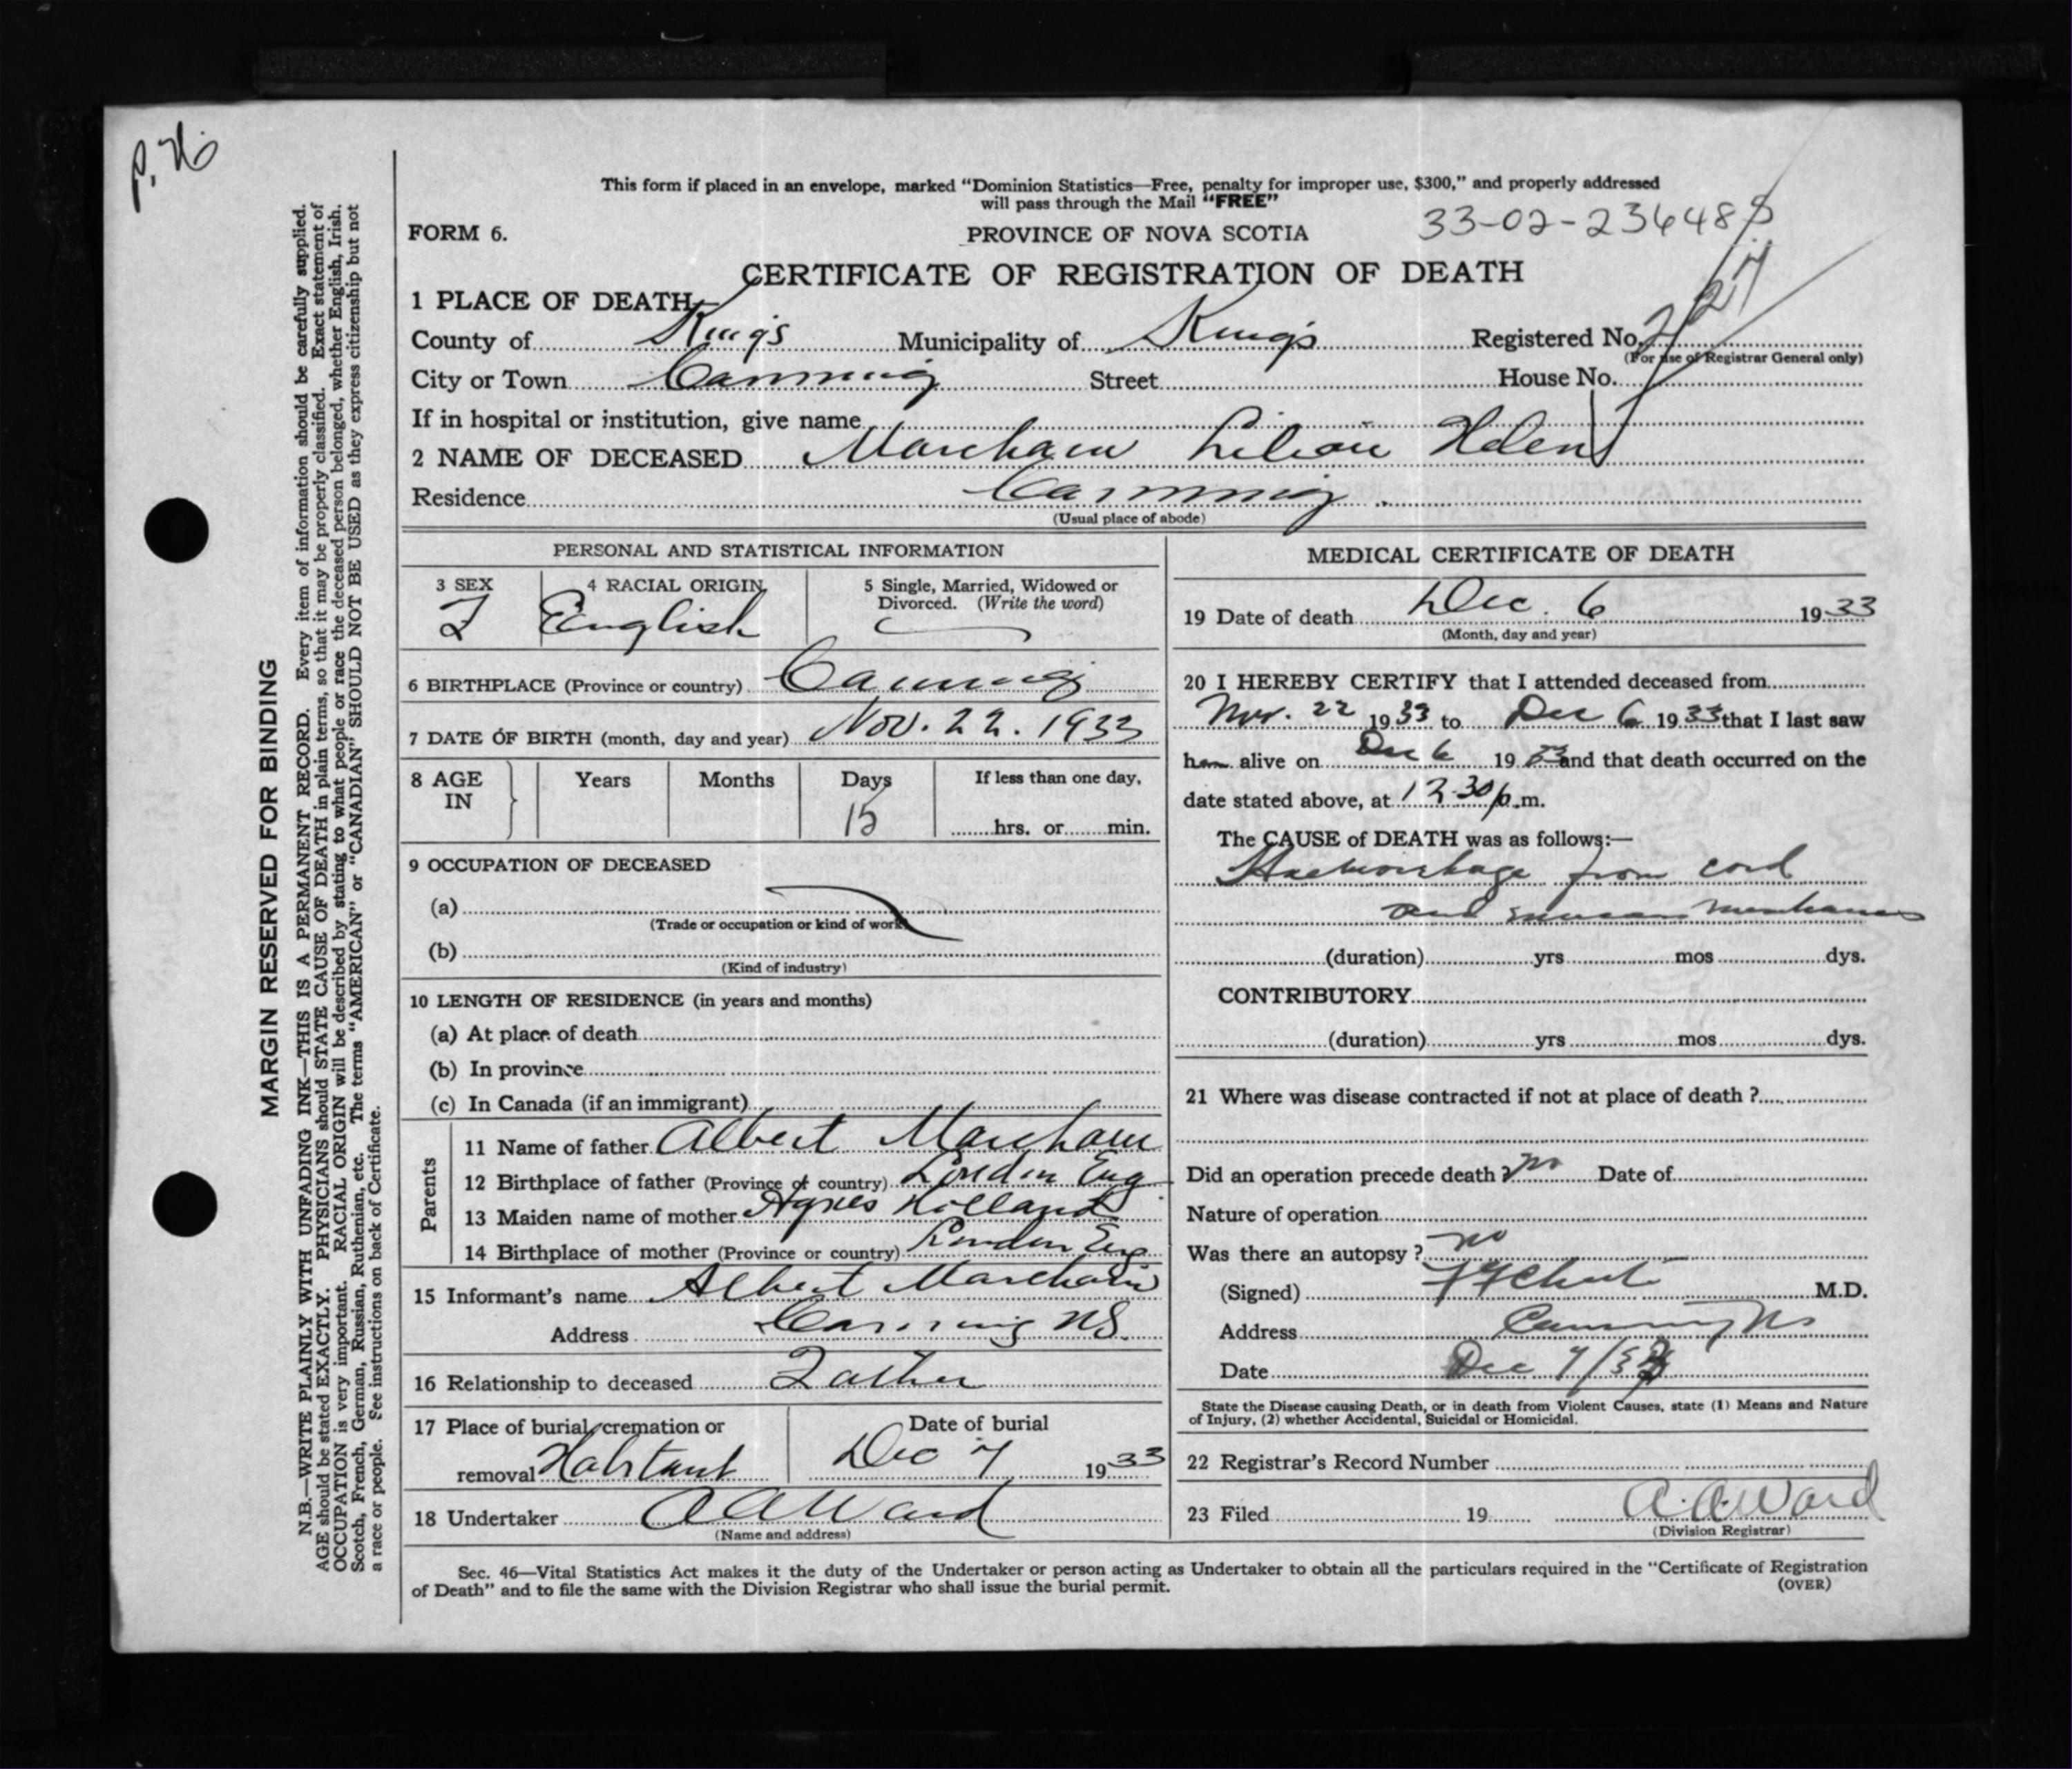 P.H.
This form if placed in an envelope, marked “Dominion Statistics—Free, penalty for improper use, $300,” and properly addressed
will pass through the Mail “FREE”
33-02-236488
FORM 6.
PROVINCE OF NOVA SCOTIA
CERTIFICATE OF REGISTRATION OF DEATH
1 PLACE OF DEATH—
County of Kings Municipality of Kings Registered No.
(For use of Registrar General only)
City or Town Canning Street House No.
If in hospital or institution, give name
2 NAME OF DECEASED Marcham Lilian Helen
Residence Canning
(Usual place of abode)
PERSONAL AND STATISTICAL INFORMATION
3 SEX 4 RACIAL ORIGIN 5 Single, Married, Widowed or
Divorced. (Write the word)
F English
6 BIRTHPLACE (Province or country) Canning
7 DATE OF BIRTH (month, day and year) Nov. 22. 1933
8 AGE IN Years Months Days If less than one day,
15 hrs. or min.
9 OCCUPATION OF DECEASED
(a)
(Trade or occupation or kind of work)
(b)
(Kind of industry)
10 LENGTH OF RESIDENCE (in years and months)
(a) At place of death
(b) In province
(c) In Canada (if an immigrant)
Parents
11 Name of father Albert Marcham
12 Birthplace of father (Province or country) London Eng
13 Maiden name of mother Agnes Holland
14 Birthplace of mother (Province or country) London Eng
15 Informant's name Albert Marcham
Address Canning NS.
16 Relationship to deceased Father
17 Place of burial, cremation or Date of burial
removal Habitant Dec 7 1933
18 Undertaker A A Ward
(Name and address)
MEDICAL CERTIFICATE OF DEATH
19 Date of death Dec. 6 1933
(Month, day and year)
20 I HEREBY CERTIFY that I attended deceased from
Nov. 22 1933 to Dec 6 1933 that I last saw
alive on Dec 6 1933 and that death occurred on the
date stated above, at 12.30 p.m.
The CAUSE of DEATH was as follows:—
Haemorrhage from cord
and mucous membranes
(duration) yrs mos dys.
CONTRIBUTORY
(duration) yrs mos dys.
21 Where was disease contracted if not at place of death ?
Did an operation precede death ? no Date of
Nature of operation
Was there an autopsy ? no
(Signed) M.D.
Address Canning NS
Date Dec 7/33
State the Disease causing Death, or in death from Violent Causes, state (1) Means and Nature
of Injury, (2) whether Accidental, Suicidal or Homicidal.
22 Registrar's Record Number
23 Filed 19 A. A. Ward
(Division Registrar)
Sec. 46—Vital Statistics Act makes it the duty of the Undertaker or person acting as Undertaker to obtain all the particulars required in the “Certificate of Registration
of Death” and to file the same with the Division Registrar who shall issue the burial permit.
(OVER)
MARGIN RESERVED FOR BINDING
N.B.—WRITE PLAINLY WITH UNFADING INK—THIS IS A PERMANENT RECORD. Every item of information should be carefully supplied.
AGE should be stated EXACTLY. PHYSICIANS should STATE CAUSE OF DEATH in plain terms, so that it may be properly classified. Exact statement of
OCCUPATION is very important. RACIAL ORIGIN will be described by stating to what people or race the deceased person belonged, whether English, Irish,
Scotch, French, German, Russian, Ruthenian, etc. The terms “AMERICAN” or “CANADIAN” SHOULD NOT BE USED as they express citizenship but not
a race or people. See instructions on back of Certificate.